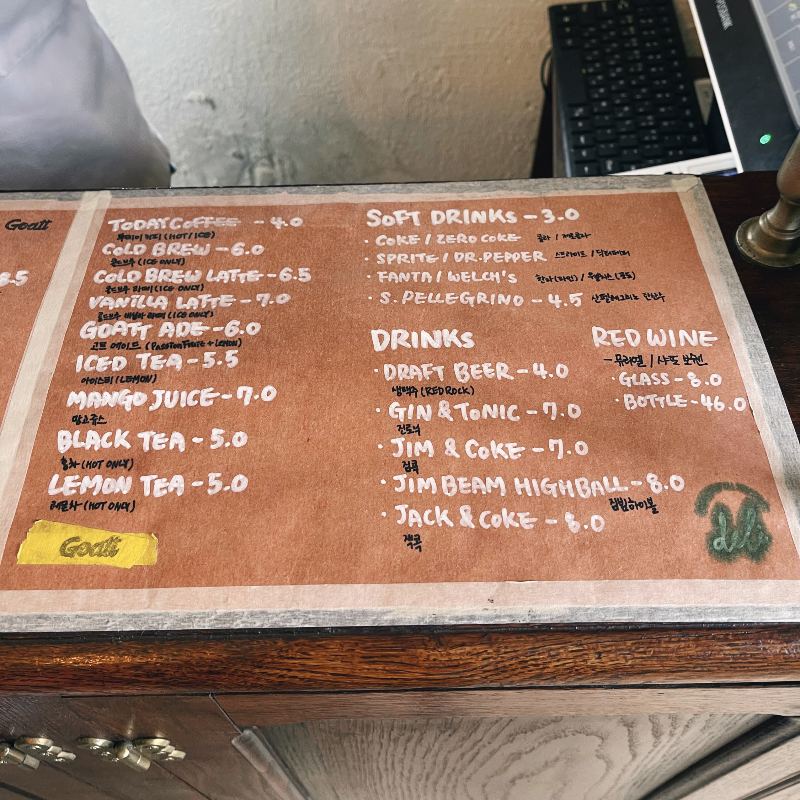 Goatt
8.5
TODAY COFFEE - 4.0
투데이 커피 (HOT/ICE)
COLD BREW - 6.0
콜드브루 (ICE ONLY)
COLD BREW LATTE - 6.5
콜드브루 라떼 (ICE ONLY)
VANILLA LATTE - 7.0
콜드브루 바닐라 라떼 (ICE ONLY)
GOATT ADE - 6.0
고트 에이드 (PASSIONFRUIT + LEMON)
ICED TEA - 5.5
아이스티 (LEMON)
MANGO JUICE - 7.0
망고쥬스
BLACK TEA - 5.0
홍차 (HOT ONLY)
LEMON TEA - 5.0
레몬차 (HOT ONLY)
Goatt
SOFT DRINKS - 3.0
· COKE / ZERO COKE 콜라 / 제로콜라
· SPRITE / DR.PEPPER 스프라이트 / 닥터페퍼
· FANTA / WELCH'S 환타(파인) / 웰치스(포도)
· S. PELLEGRINO - 4.5 산펠레그리노 탄산수
DRINKS
· DRAFT BEER - 4.0
생맥주 (REDROCK)
· GIN & TONIC - 7.0
진토닉
· JIM & COKE - 7.0
짐콕
· JIM BEAM HIGHBALL - 8.0
짐빔하이볼
· JACK & COKE - 8.0
잭콕
RED WINE
- 뮤리엘 / 샤또 보넷
· GLASS - 8.0
· BOTTLE - 46.0
deli